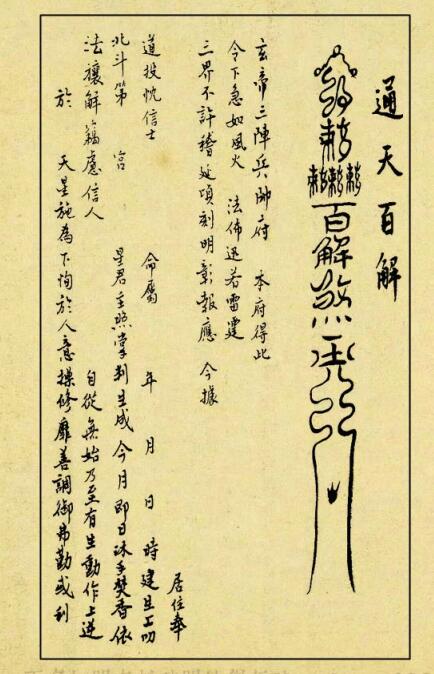 通天百解
敕
敕敕敕
百解煞
玄帝三陣兵帥府 本府得此
令下急如風火 法佈迅若雷霆
三界不許稽延頃刻明彰報應 今據
居住奉
道投忱信士 命屬 年 月 日 時建生上叨
北斗第 宮 星君主照掌判生成今月即日沐手焚香依
法禳解慮信人 自從無始乃至有生動作上逆
於 天星施為下於人意操修靡善調御弗勤或利